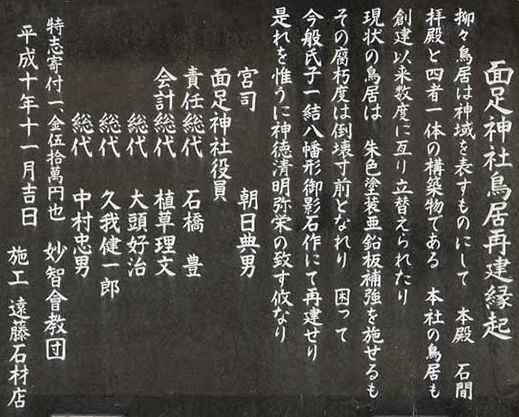 面足神社鳥居再建縁起
抑々鳥居は神域を表すものにして 本殿 石間
拝殿と四者一体の構築物である 本社の鳥居も
創建以来数度に亙り立替えられたり
現状の鳥居は 朱色塗装亜鉛板補強を施せるも
その腐朽度は倒壊寸前となれり 困って
今般氏子一結八幡形御影石作にて再建せり
是れを惟うに神徳清明弥栄の致す攸なり
宮司 朝日典男
面足神社役員
責任総代 石橋 豊
会計総代 植草理文
総代 大頭好治
総代 久我健一郎
総代 中村忠男
特志寄付一、金伍拾萬円也 妙智會教団
平成十年十一月吉日 施工 遠藤石材店